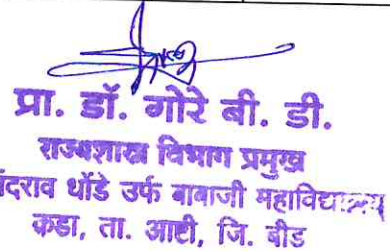 प्रा. डॉ. गोरे बी. डी.
राज्यशास्त्र विभाग प्रमुख
ंदराव धोंडे उर्फ बाबाजी महाविद्यालय
कडा, ता. आष्टी, जि. बीड